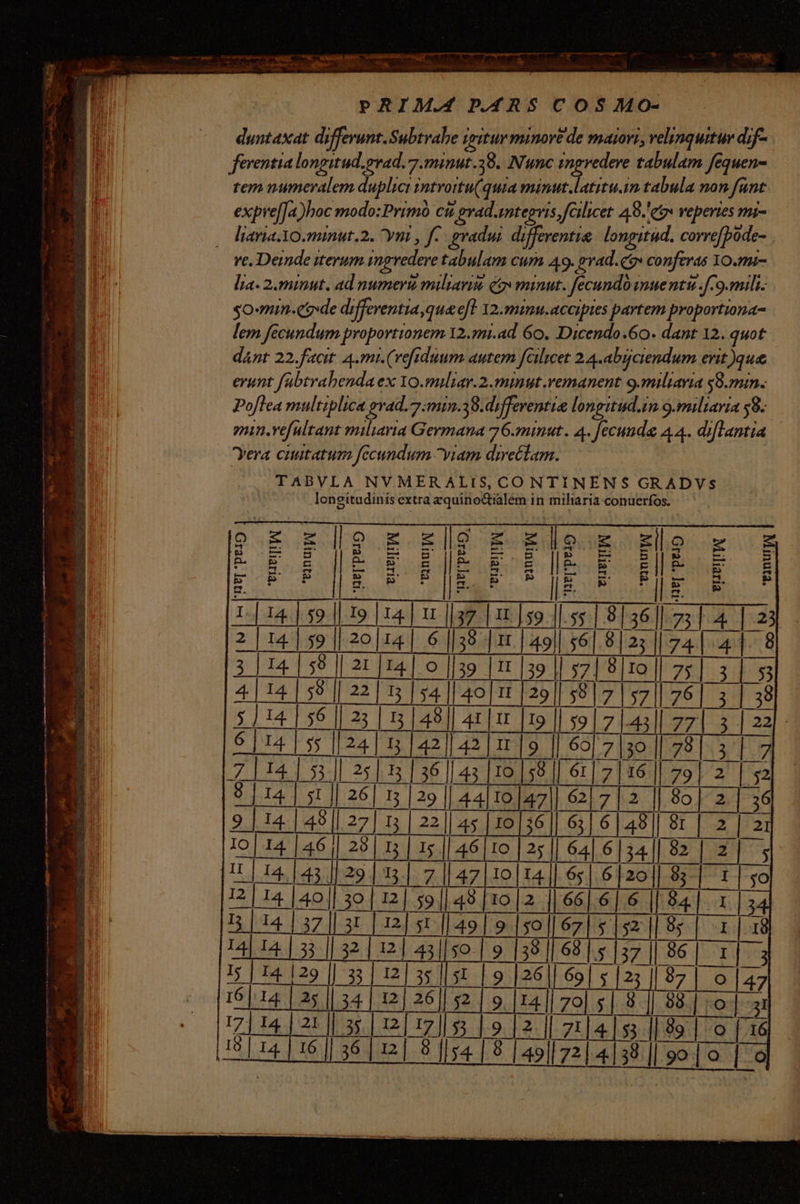 PRIMA PARS COSMO-
duntaxat differunt. Subtrahe igitur minorē de maiori, relinquitur dif-
ferentia longitud. grad. 7. minut. 38. Nunc ingredere tabulam sequen-
tem numeralem duplici introitu (quia minut. latitu. in tabula non sunt
expressa) hoc modo: Primò cū grad. integris, scilicet 48. & reperies mi-
liaria. 10. minut. 2. vni, s. gradui differentiæ longitud. correspōde-
re. Deinde iterum ingredere tabulam cum 49. grad. & conferas 10. mi-
lia. 2. minut. ad numerū miliariū & minut. secundò inuentū. s. 9. mili.
50. min. & de differentia, quæ est 12. minu. accipies partem proportiona-
lem secundum proportionem 12. mi. ad 60. Dicendo. 60. dant 12. quot
dant 22. facit 4. mi. (residuum autem scilicet 24. abijciendum erit) quæ
erunt subtrahenda ex 10. miliar. 2. minut. remanent 9. miliaria 58. min.
Postea multiplica grad. 7. min. 38. differentiæ longitud. in 9. miliaria 58.
min. resultant miliaria Germana 76. minut. 4. secunda 44. distantia
vera ciuitatum secundum viam directam.
TABVLA NVMERALIS, CONTINENS GRADVS
longitudinis extra æquinoctialem in miliaria conuersos.
Grad. lati. Miliaria. Minuta. Grad. lati. Miliaria Minuta. Grad. lati. Miliaria. Minuta Grad. lati. Miliaria Minuta. Grad. lati. Miliaria Minuta.
1 14 59 19 14 11 37 11 59 55 8 36 73 4 23
2 14 59 20 14 6 38 11 49 56 8 23 74 4 8
3 14 58 21 14 0 39 11 39 57 8 10 75 3 53
4 14 58 22 13 54 40 11 29 58 7 57 76 3 38
5 14 56 23 13 48 41 11 19 59 7 43 77 3 22
6 14 55 24 13 42 42 11 9 60 7 30 78 3 7
7 14 53 25 13 36 43 10 58 61 7 16 79 2 52
8 14 51 26 13 29 44 10 47 62 7 2 80 2 36
9 14 48 27 13 22 45 10 36 63 6 48 81 2 21
10 14 46 28 13 15 46 10 25 64 6 34 82 2 5
11 14 43 29 13 7 47 10 14 65 6 20 83 1 50
12 14 40 30 12 59 48 10 2 66 6 6 84 1 34
13 14 37 31 12 51 49 9 50 67 5 52 85 1 18
14 14 33 32 12 43 50 9 38 68 5 37 86 1 3
15 14 29 33 12 35 51 9 26 69 5 23 87 0 47
16 14 25 34 12 26 52 9 14 70 5 8 88 0 31
17 14 21 35 12 17 53 9 2 71 4 53 89 0 16
18 14 16 36 12 8 54 8 49 72 4 38 90 0 0